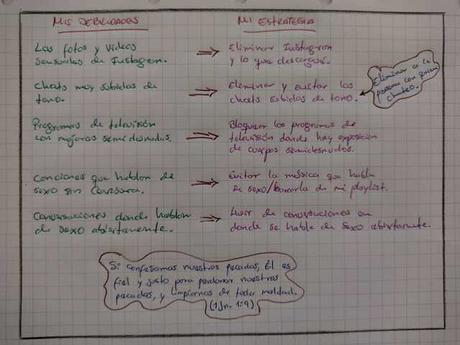 MIS DEBILIDADES
MI ESTRATEGIA
Las fotos y videos
sensuales de Instagram.
Eliminar Instagram
y lo que descargué.
Chats muy subidos de
tono.
Eliminar y evitar los
chats subidos de tono.
Eliminar a la
persona con quien
chateo.
Programas de televisión
con mujeres semidesnudas.
Bloquear los programas de
televisión donde hay exposición
de cuerpos semidesnudos.
Canciones que hablan de
sexo sin censura.
Evitar la música que habla
de sexo/borrarla de mi playlist.
Conversaciones donde hablan
de sexo abiertamente.
Huir de conversaciones en
donde se hable de sexo abiertamente.
Si confesamos nuestros pecados, Él es
fiel y justo para perdonar nuestros
pecados, y limpiarnos de toda maldad.
(1 Jn. 1:9)